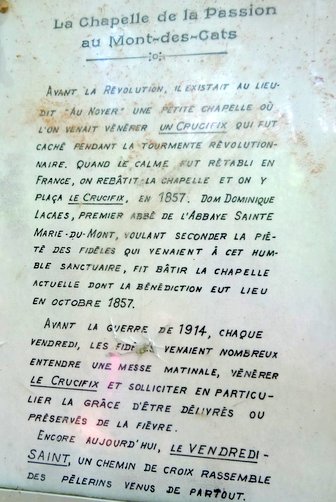 La Chapelle de la Passion
au Mont-des-Cats
AVANT LA RÉVOLUTION, IL EXISTAIT AU LIEU-
DIT "AU NOYER" UNE PETITE CHAPELLE OÙ
L'ON VENAIT VÉNÉRER UN CRUCIFIX QUI FUT
CACHÉ PENDANT LA TOURMENTE RÉVOLUTION-
NAIRE. QUAND LE CALME FUT RÉTABLI EN
FRANCE, ON REBÂTIT LA CHAPELLE ET ON Y
PLAÇA LE CRUCIFIX, EN 1857. DOM DOMINIQUE
LACAES, PREMIER ABBÉ DE L'ABBAYE SAINTE
MARIE-DU-MONT, VOULANT SECONDER LA PIÉ-
TÉ DES FIDÈLES QUI VENAIENT À CET HUM-
BLE SANCTUAIRE, FIT BÂTIR LA CHAPELLE
ACTUELLE DONT LA BÉNÉDICTION EUT LIEU
EN OCTOBRE 1857.
AVANT LA GUERRE DE 1914, CHAQUE
VENDREDI, LES VENAIENT NOMBREUX
ENTENDRE UNE MESSE MATINALE, VÉNÉRER
LE CRUCIFIX ET SOLLICITER EN PARTICU-
LIER LA GRÂCE D'ÊTRE DÉLIVRÉS OU
PRÉSERVÉS DE LA FIÈVRE.
ENCORE AUJOURD'HUI, LE VENDREDI-
SAINT, UN CHEMIN DE CROIX RASSEMBLE
DES PÈLERINS VENUS DE PARTOUT.